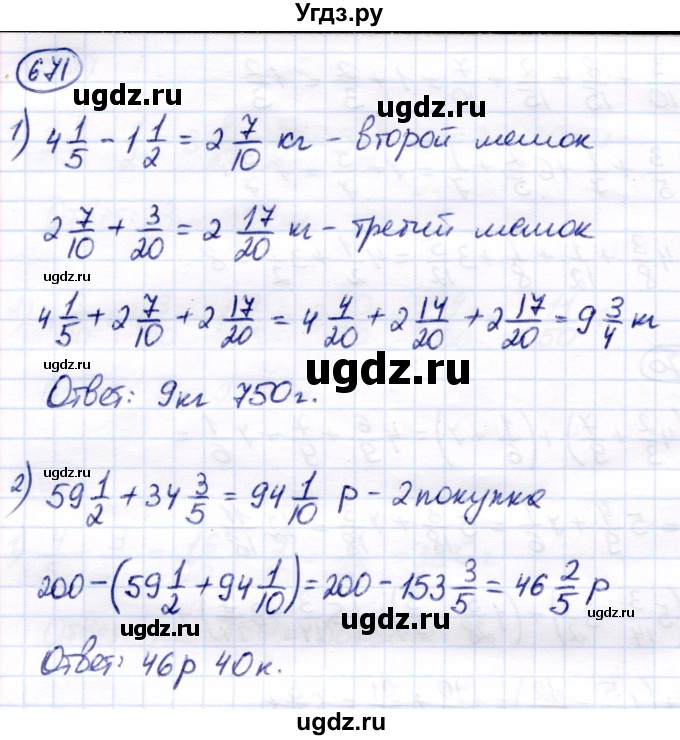 Угдз.ру
671
ugdz.ru
1) 4 1/5 - 1 1/2 = 2 7/10 кг - второй мешок
ugdz.ru ugdz.ru
2 7/10 + 3/20 = 2 17/20 кг - третий мешок
ugdz.ru ugdz.ru
4 1/5 + 2 7/10 + 2 17/20 = 4 4/20 + 2 14/20 + 2 17/20 = 9 3/4 кг
ugdz.ru
Ответ: 9кг 750г.
ugdz.ru
2) 59 1/2 + 34 3/5 = 94 1/10 р - 2 покупка
ugdz.ru ugdz.ru
200 - (59 1/2 + 94 1/10) = 200 - 153 3/5 = 46 2/5 р
ugdz.ru ugdz.ru ugdz.ru
Ответ: 46р 40к.
ugdz.ru